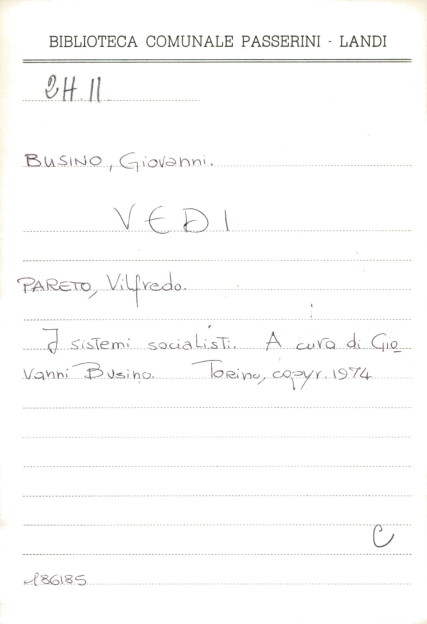 BIBLIOTECA COMUNALE PASSERINI - LANDI
2H.11
BUSINO, Giovanni.
VEDI
PARETO, Vilfredo.
I sistemi socialisti. A cura di Gio
vanni Busino. Torino, copyr. 1974
C
186185